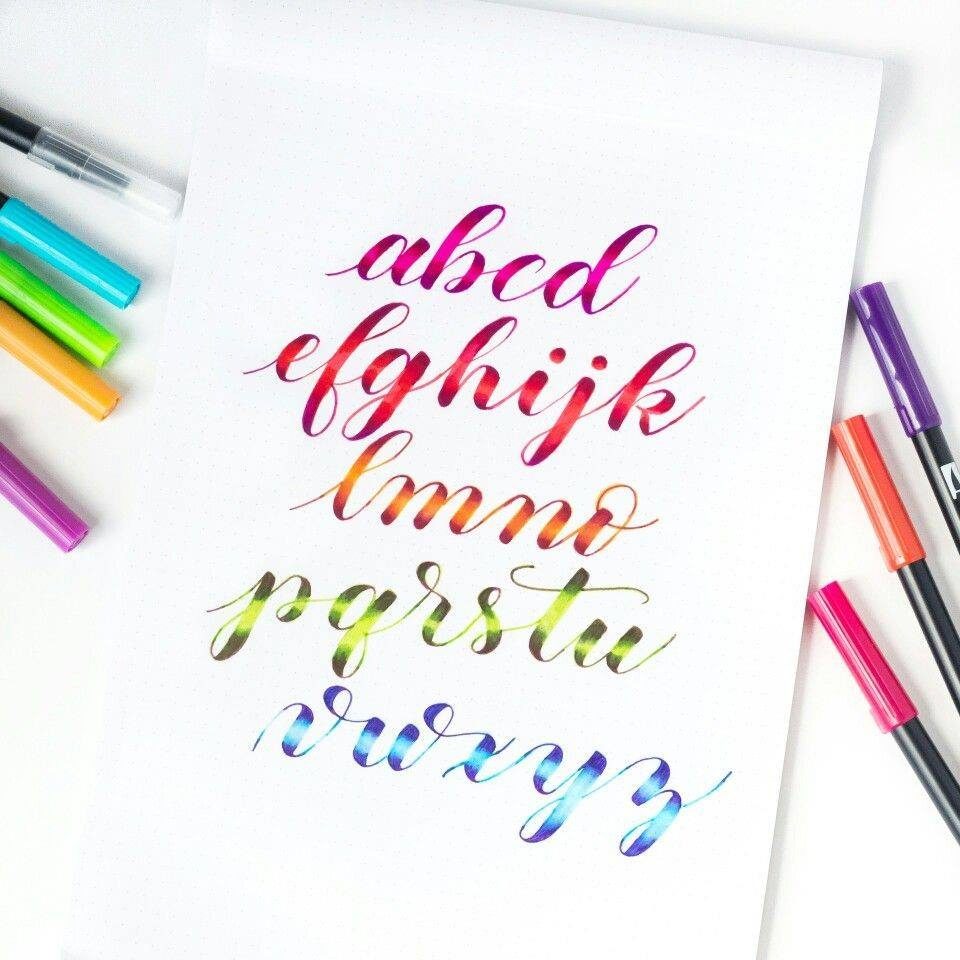 abcd
efghijk
lmno
pqrstu
vwxyz